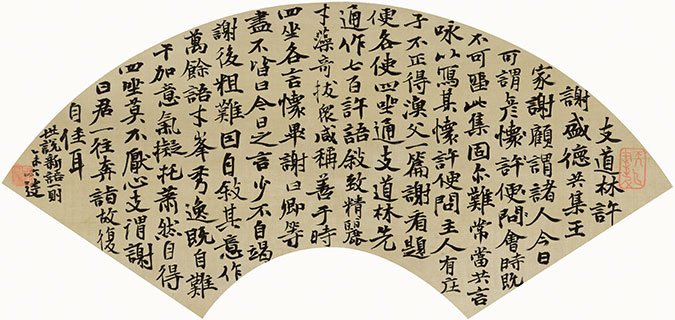 支道林許
謝盛德共集王
家謝顧謂諸人今日
可謂彥懷許便問會時既
不可畱此集固尔難常當共言
咏以寫其懷許便問主人有莊
子不正得漁父一篇謝看題
便各使四坐通支道林先
通作七百許語敘致精麗
才藻奇拔眾咸稱善于時
四坐各言懷畢謝曰卿等
盡不皆曰今日之言少不自竭
謝後粗難因自敘其意作
萬餘語才峯秀逸既自難
干加意氣擬托蕭然自得
四坐莫不厭心支謂謝
曰君一往奔詣故復
自佳耳
世說新語一則